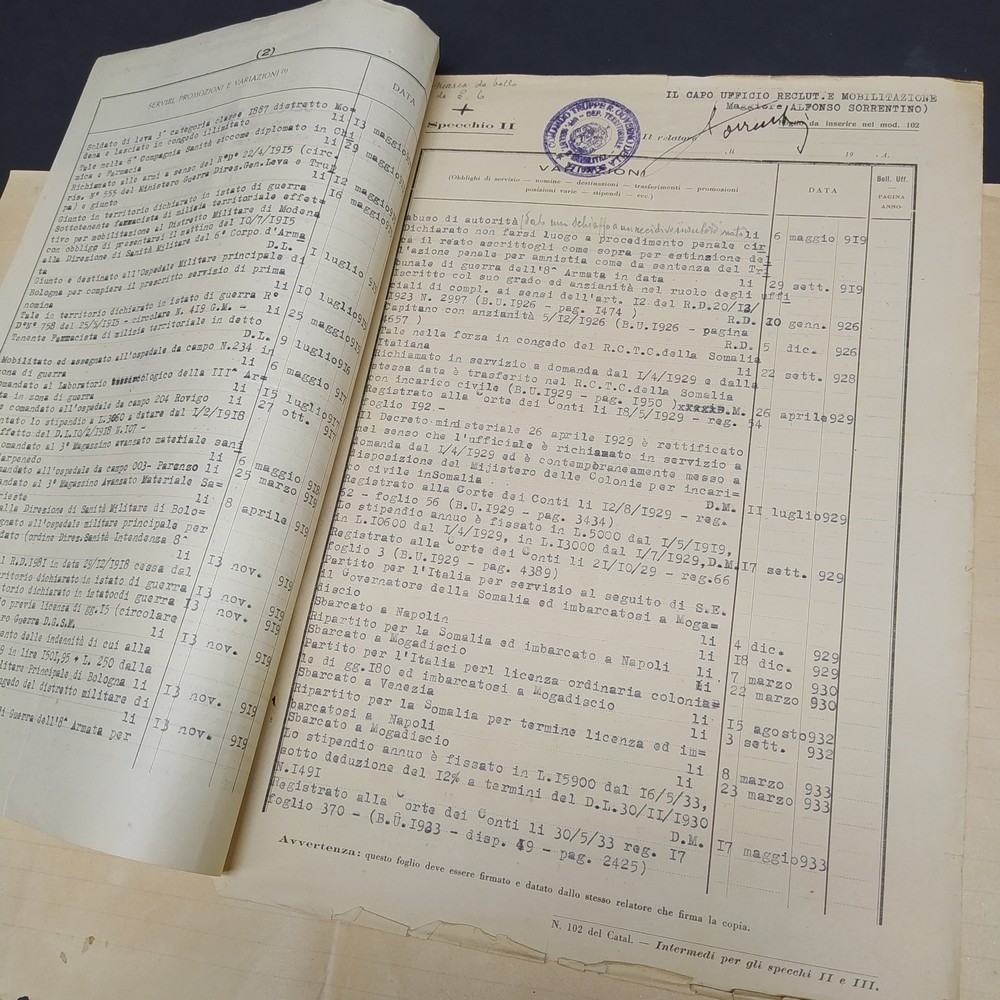 (2)
SERVIZI, PROMOZIONI E VARIAZIONI (1)
DATA
Soldato di leva 3ª categoria classe I887 distretto Mo=
dena e lasciato in congedo illimitato li I3 maggio
Tale nella 6ª Compagnia Sanità siccome diplomato in Chi
mica e Farmacia li 29 maggio
Richiamato alle armi a senso del R°D° 22/4/I9I5 (circ.
ris. N° 555 del Ministero Guerra Dires.Gen.Leva e Trup
pa) e giunto li I2 maggio
Giunto in territorio dichiarato in istato di guerra
li I6 maggio
Sottotenente farmacista di milizia territoriale effet=
tivo per mobilitazione al Distretto Militare di Modena
con obbligo di presentarsi il mattino del I0/7/I9I5
alla Direzione di Sanità Militare del 6° Corpo d'Arma
ta D.L. I luglio
Giunto e destinato all'Ospedale Militare principale di
Bologna per compiere il prescritto servizio di prima
nomina li I0 luglio
Tale in territorio dichiarato in istato di guerra R°
D°N° 758 del 25/5/I9I5 - circolare N. 4I9 G.M. - li 25 maggio
Tenente Farmacista di milizia territoriale in detto
D.L. 9 luglio
Mobilitato ed assegnato all'ospedale da campo N.234 in
zona di guerra li 6 maggio
omandato al Laboratorio della IIIª Ar=
ta in zona di guerra li I5 luglio
comandato all'ospedale da campo 204 Rovigo
li 27 ott.
ntato lo stipendio a L. a datare dal I/2/I9I8
effetto del D.L.I0/2/I9I8 N.I07 -
omandato al 3° Magazzino avanzato materiale sani
arpenedo li 6 maggio 9I8
mandato all'ospedale da campo 003- Parenzo
li 25 marzo 9I9
andato al 3° Magazzino Avanzato Materiale Sa=
rieste li 8 aprile 9I9
alla Direzione di Sanità Militare di Bolo=
gnato all'ospedale militare principale per
dato (ordine Dires.Sanità Intendenza 8ª
li I3 nov. 9I9
l R.D.I98I in data 29/I2/I9I8 cessa dal
rritorio dichiarato in istato di guerra I3 nov. 9I9
torio dichiarato in istatocdi guerra I3 nov. 9I9
o previa licenza di gg.I5 (circolare
ro Guerra D.G.S.M. li I3 nov. 9I9
ento delle indennità di cui alla
9 in lire I50I,95 + L. 250 dalla
litare Principale di Bologna li I3 nov. 9I9
ngedo del distretto militare di
li I3 nov. 9I9
di Guerra dell'8ª Armata per
Specchio II
IL CAPO UFFICIO RECLUT.E MOBILITAZIONE
Maggiore ALFONSO SORRENTINO)
Foglio da inserire nel mod. 102
Il relatore
li 19 A.
VARIAZIONI
(Obblighi di servizio — nomine — destinazioni — trasferimenti — promozioni
posizioni varie — stipendi — ecc.)
DATA
Boll. Uff.
PAGINA
ANNO
abuso di autorità li 6 maggio 9I9
Dichiarato non farsi luogo a procedimento penale cir
ca il reato ascrittogli come sopra per estinzione del
l'azione penale per amnistia come da sentenza del Tri
bunale di guerra dell'8ª Armata in data li 29 sett. 9I9
Iscritto col suo grado ed anzianità nel ruolo degli uffi
ciali di compl. ai sensi dell'art. I2 del R.D.20/I2/
I923 N. 2997 (B.U.I926 - pag. I474 ) R.D. I0 genn. 926
Capitano con anzianità 5/I2/I926 (B.U.I926 - pagina
4657 ) R.D. 5 dic. 926
Tale nella forza in congedo del R.C.T.C.della Somalia
Italiana li 22 sett. 928
Richiamato in servizio a domanda dal I/4/I929 e dalla
stessa data è trasferito nel R.C.T.C.della Somalia
con incarico civile (B.U.I929 - pag. I950 ) D.M. 26 aprile929
Registrato alla Corte dei Conti li I8/5/I929 - reg. 54
foglio I92.-
Il Decreto ministeriale 26 aprile I929 è rettificato
nel senso che l'ufficiale è richiamato in servizio a
domanda dal I/4/I929 ed è contemporaneamente messo a
disposizione del Mijistero delle Colonie per incari=
co civile inSomalia D.M. II luglio929
Registrato alla Corte dei Conti li I2/8/I929 - reg.
62 - foglio 56 (B.U.I929 - pag. 3434)
Lo stipendio annuo è fissato in L.5000 dal I/5/I9I9,
in L.I0600 dal I/4/I929, in L.I3000 dal I/7/I929,D.M.I7 sett. 929
Registrato alla Corte dei Conti li 2I/I0/29 - reg.66
foglio 3 (B.U.I929 - pag. 4389)
Partito per l'Italia per servizio al seguito di S.E.
il Governatore della Somalia ed imbarcatosi a Moga=
discio li 4 dic. 929
Sbarcato a Napolin li I8 dic. 929
Ripartito per la Somalia ed imbarcato a Napoli li 7 marzo 930
Sbarcato a Mogadiscio li 22 marzo 930
Partito per l'Italia perl licenza ordinaria colonia=
le di gg.I80 ed imbarcatosi a Mogadiscio li I5 agosto932
Sbarcato a Venezia li 3 sett. 932
Ripartito per la Somalia per termine licenza ed im=
barcatosi a Napoli li 8 marzo 933
Sbarcato a Mogadiscio li 23 marzo 933
Lo stipendio annuo è fissato in L.I5900 dal I6/5/33,
sotto deduzione del I2% a termini del D.L.30/II/I930
N.I49I D.M. I7 maggio933
Registrato alla Corte dei Conti li 30/5/33 reg. I7
foglio 370 - (B.U.I933 - disp. 49 - pag. 2425)
Avvertenza: questo foglio deve essere firmato e datato dallo stesso relatore che firma la copia.
N. 102 del Catal. — Intermedi per gli specchi II e III.